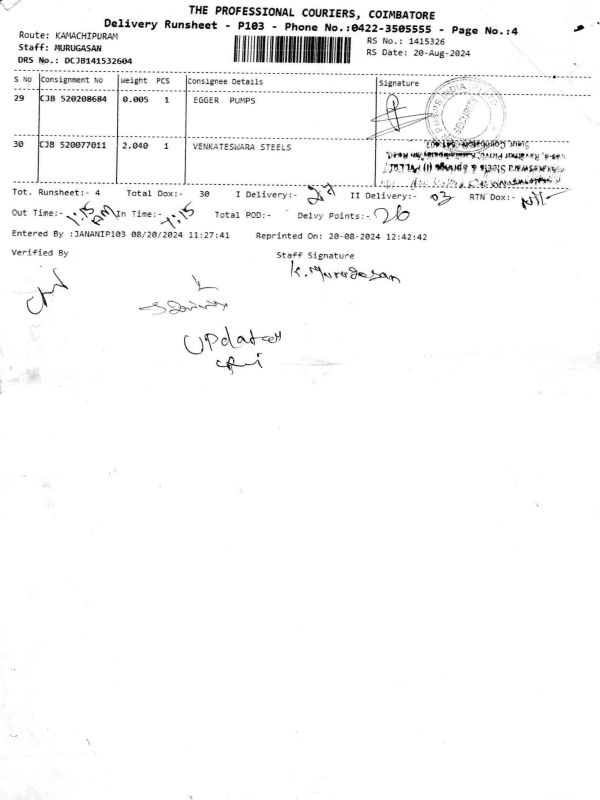 THE PROFESSIONAL COURIERS, COIMBATORE
Delivery Runsheet - P103 - Phone No.:0422-3505555 - Page No.:4
Route: KAMACHIPURAM
RS No.: 1415326
Staff: MURUGASAN
RS Date: 20-Aug-2024
DRS No.: DCJB141532604
S No Consignment No Weight PCS Consignee Details Signature
29 CJB 520208684 0.005 1 EGGER PUMPS
30 CJB 520077011 2.040 1 VENKATESWARA STEELS
PUMPS INDIA
SECURITY
Venkateswara Steels & Springs (I) Pvt Ltd.,
Tot. Runsheet:- 4 Total Dox:- 30 I Delivery:- 27 II Delivery:- 03 RTN Dox:- Nil
Out Time:- 1:15 PM In Time:- 7:15 Total POD:- Delvy Points:- 26
Entered By :JANANIP103 08/20/2024 11:27:41 Reprinted On: 20-08-2024 12:42:42
Verified By Staff Signature
K. Murugesan
Updated